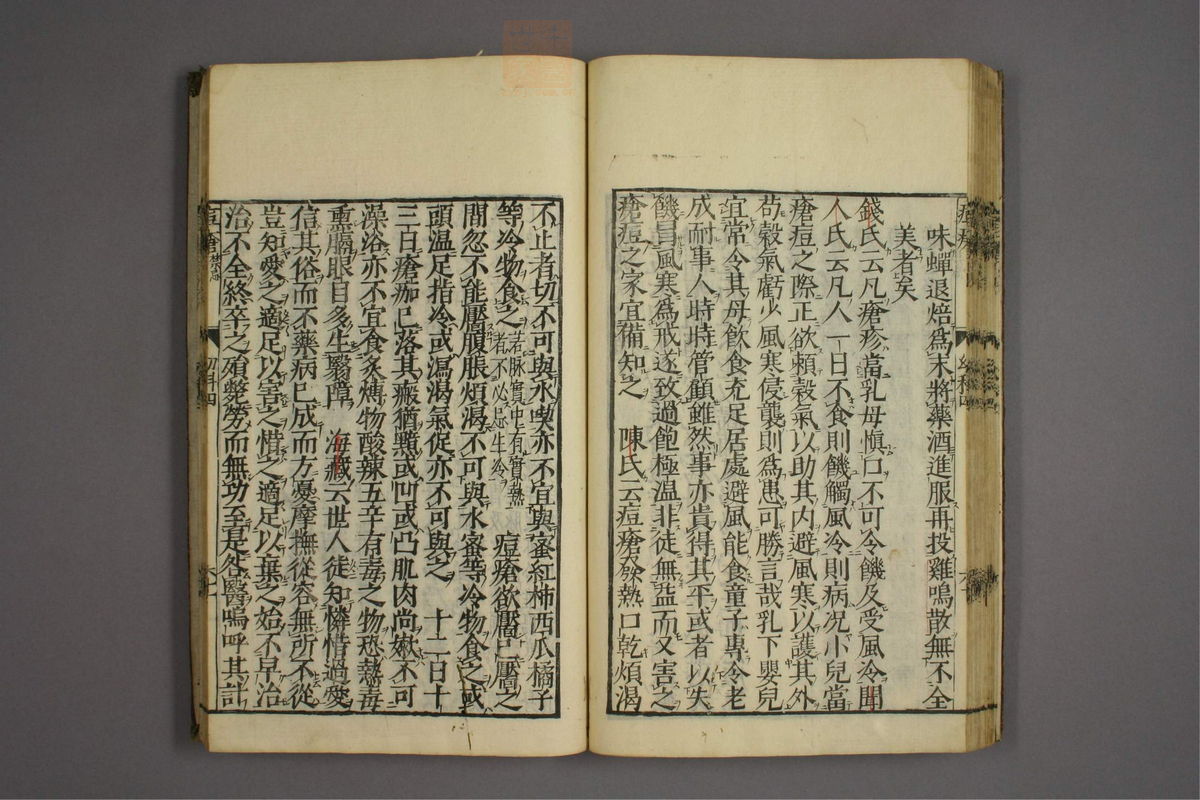 味蟬退焙爲末將藥酒進服再投雞鳴散無不全
美者矣
錢氏云凡瘡疹當乳母愼口不可冷饑及受風冷聞
人氏云凡人一日不食則饑觸風冷則病况小兒當
瘡痘之際正欲賴穀氣以助其内避風寒以護其外
苟穀氣虧少風寒侵襲則爲患可勝言哉乳下嬰兒
宜常令其母飮食充足居處避風能食童子專令老
成耐事人時時管顧雖然事亦貴得其平或者以失
饑冒風寒爲戒遂致過飽極温非徒無益而又害之
瘡痘之家宜備知之 陳氏云痘瘡發熱口乾煩渴
不止者切不可與水喫亦不宜與蜜紅柿西瓜橘子
等冷物食之若脉實中有實熱者不必忌生冷 痘瘡欲靨已靨之
間忽不能靨腹脹煩渴不可與水蜜等冷物食之或
頭温足指冷或瀉渴氣促亦不可與之 十二日十
三日瘡痂已落其瘢猶黯或凹或凸肌肉尚嫩不可
澡浴亦不宜食炙煿物酸辣五辛有毒之物恐熱毒
熏膈眼目多生翳障 海藏云世人徒知憐惜過愛
信其俗而不藥病已成而方憂摩撫從容無所不從
豈知愛之適足以害之惜之適足以棄之始不早治
治不全終卒之殞斃勞而無功至是咎醫嗚呼其計
痘瘡 禁忌
幼科四